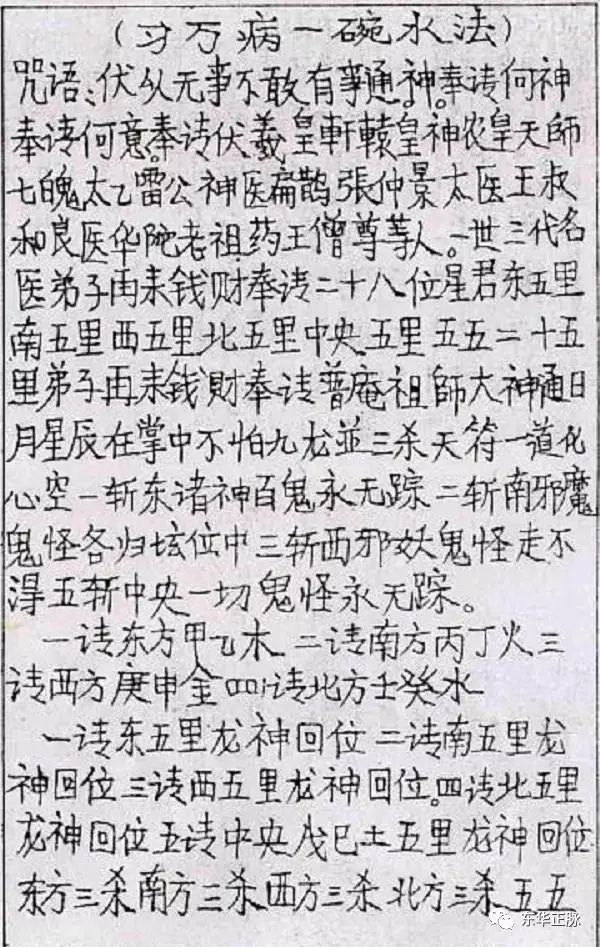 (习万病一碗水法)
咒语:伏以无事不敢有事通神。奉请何神
奉请何意。奉请伏羲皇軒轅皇神农皇天師
七魄太乙雷公神医扁鹊張仲景太医王叔
和良医华陀老祖药王僧尊等人。一世三代名
医弟子再来钱财奉请二十八位星君东五里
南五里西五里北五里中央五里五五二十五
里弟子再来钱財奉请普庵祖師大神通日
月星辰在掌中不怕九龙並三杀天符一道化
心空一斩东诸神百鬼永无踪二斩南邪魔
鬼怪各归垓位中三斩西邪妖鬼怪走不
得五斩中央一切鬼怪永无踪。
一请东方甲乙木 二请南方丙丁火三
请西方庚申金四请北方壬癸水
一请东五里龙神回位二请南五里龙
神回位三请西五里龙神回位。四请北五里
龙神回位五请中央戊巳土五里龙神回位
东方三杀南方三杀西方三杀北方三杀五五
东华正脉